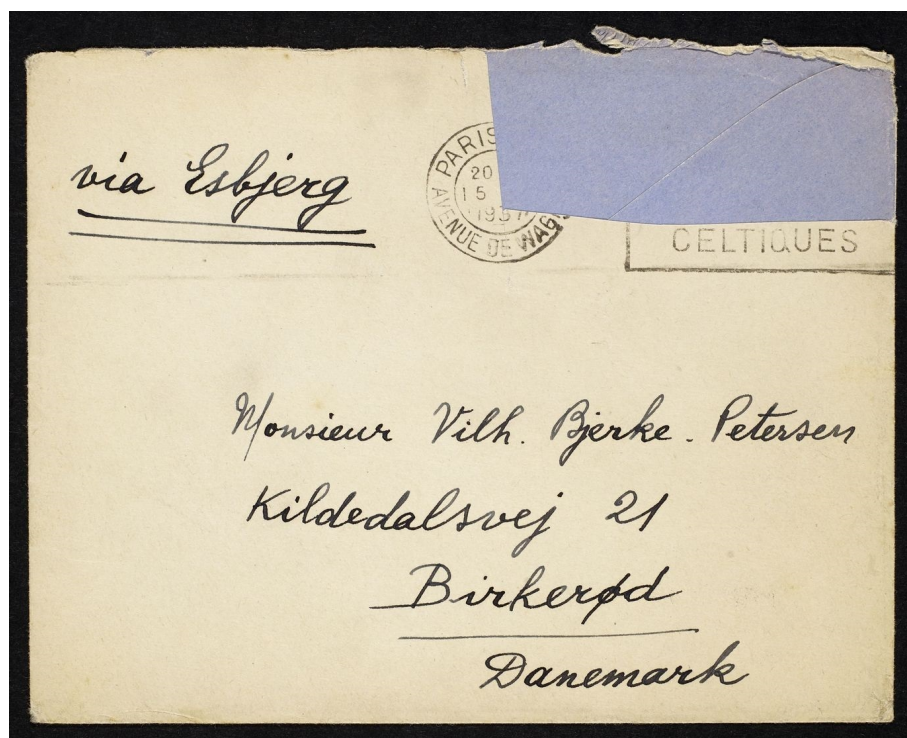 via Esbjerg
PARIS
20
15
AVENUE DE
CELTIQUES
Monsieur Vilh. Bjerke-Petersen
Kildedalsvej 21
Birkerød
Danemark